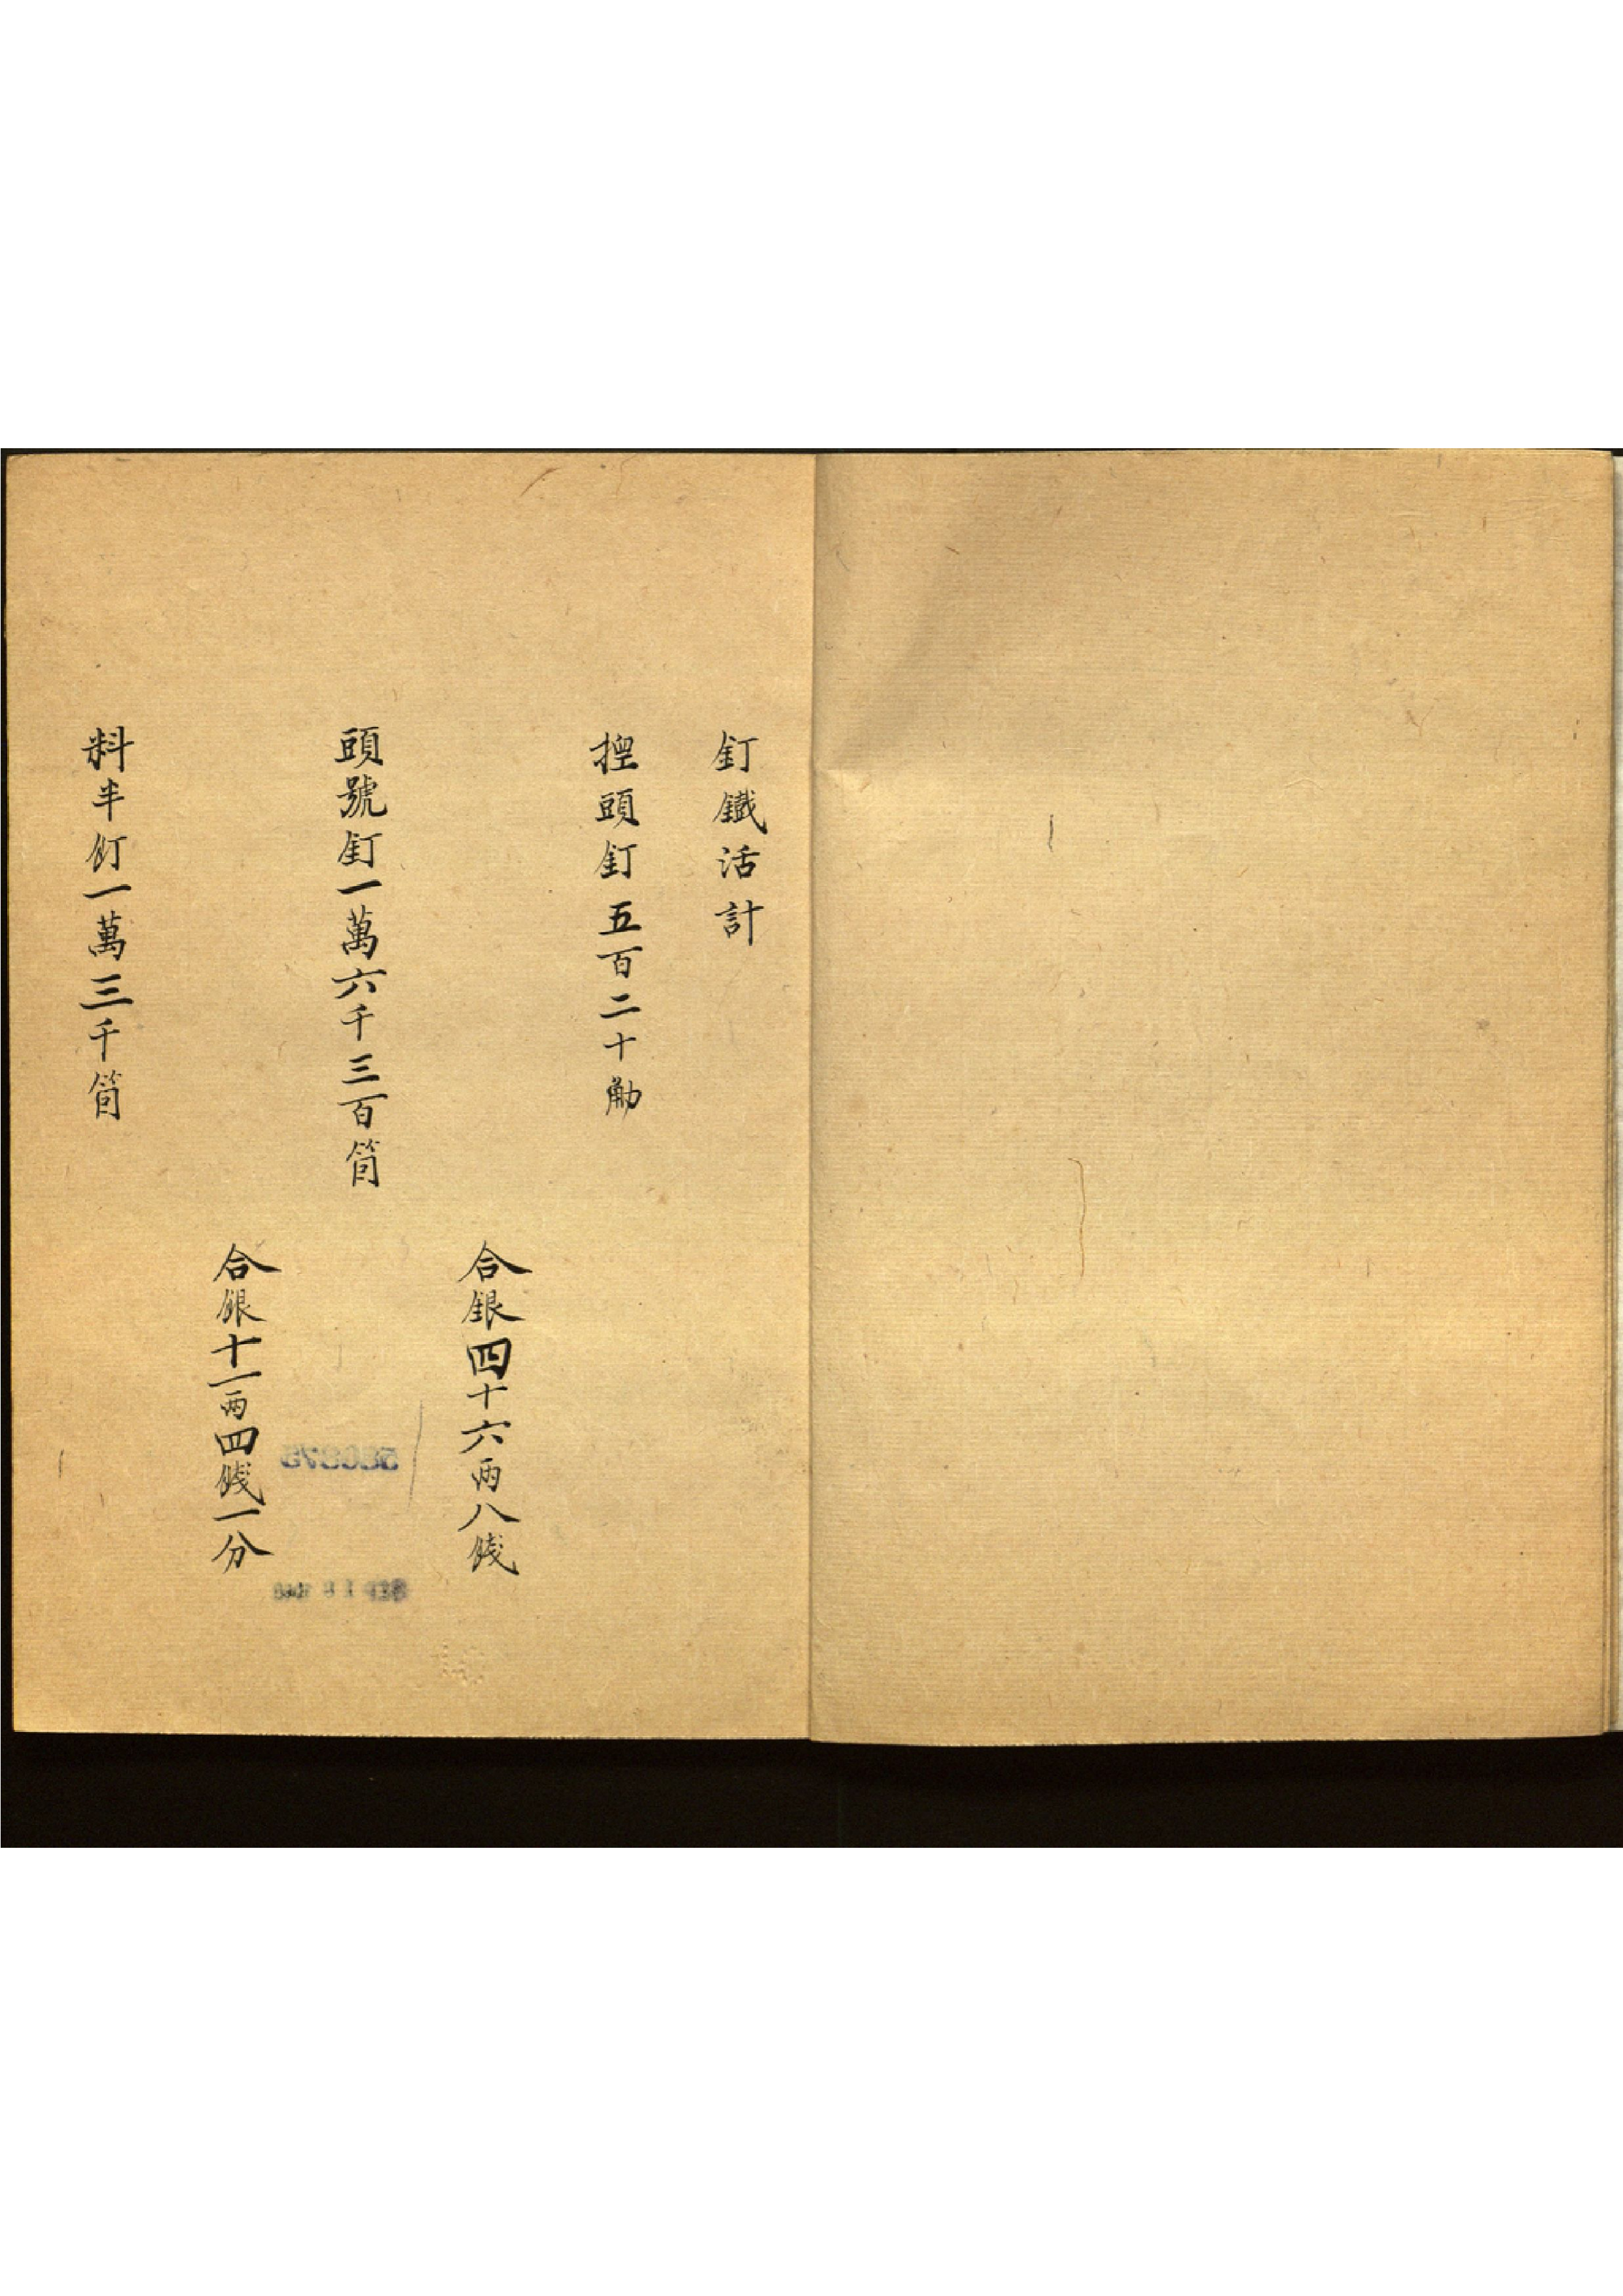 釘鐵活計
挳頭釘五百二十觔
合銀四十六兩八錢
頭號釘一萬六千三百箇
合銀十一兩四錢一分
料半釘一萬三千箇